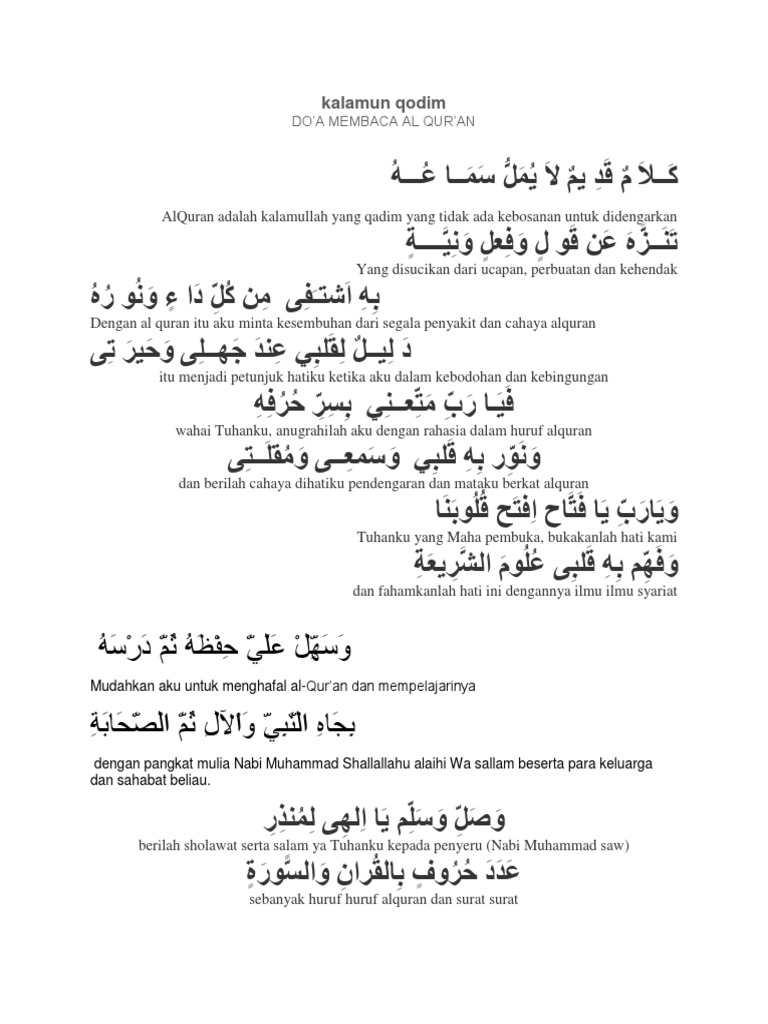 kalamun qodim
DO'A MEMBACA AL QUR'AN
كَــلاَ مٌ قَدِ يمٌ لاَ يُمَلُّ سَمَــا عُـــهُ
AlQuran adalah kalamullah yang qadim yang tidak ada kebosanan untuk didengarkan
تَنَــزَّهَ عَن قَو لٍ وَفِعلٍ وَنِيَّــــةٍ
Yang disucikan dari ucapan, perbuatan dan kehendak
بِهِ اَشتَـفِى مِن كُلِّ دَا ءٍ وَنُو رُهُ
Dengan al quran itu aku minta kesembuhan dari segala penyakit dan cahaya alquran
دَ لِيــلٌ لِقَلبِي عِندَ جَهــلِى وَحَيرَ تِى
itu menjadi petunjuk hatiku ketika aku dalam kebodohan dan kebingungan
فَيَــا رَبِّ مَتِّعــنِي بِسِرِّ حُرُفِهِ
wahai Tuhanku, anugrahilah aku dengan rahasia dalam huruf alquran
وَنَوِّر بِهِ قَلبِي وَسَمعِــى وَمُقلَــتِى
dan berilah cahaya dihatiku pendengaran dan mataku berkat alquran
وَيَارَبِّ يَا فَتَّاح اِفتَح قُلُوبَنَا
Tuhanku yang Maha pembuka, bukakanlah hati kami
وَفَهِّم بِهِ قَلبِى عُلُومَ الشَّرِيعَةِ
dan fahamkanlah hati ini dengannya ilmu ilmu syariat
وَسَهِّلْ عَلَيَّ حِفْظَهُ ثُمَّ دَرْسَهُ
Mudahkan aku untuk menghafal al-Qur'an dan mempelajarinya
بِجَاهِ النَّبِيِّ وَالآلِ ثُمَّ الصَّحَابَةِ
dengan pangkat mulia Nabi Muhammad Shallallahu alaihi Wa sallam beserta para keluarga
dan sahabat beliau.
وَصَلِّ وَسَلِّم يَا اِلهِى لِمُنذِرِ
berilah sholawat serta salam ya Tuhanku kepada penyeru (Nabi Muhammad saw)
عَدَدَ حُرُوفٍ بِالقُرانِ وَالسُّورَةٍ
sebanyak huruf huruf alquran dan surat surat